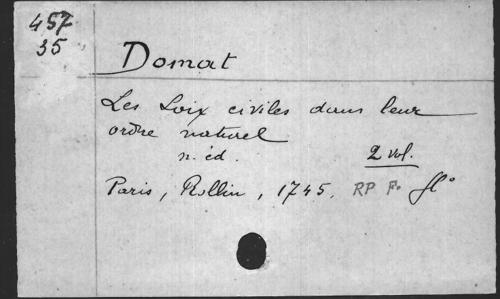 457
35
Domat
Les Loix civiles dans leur
ordre naturel
n. éd. 2 vol.
Paris, Rollin, 1745. RP F. fl°